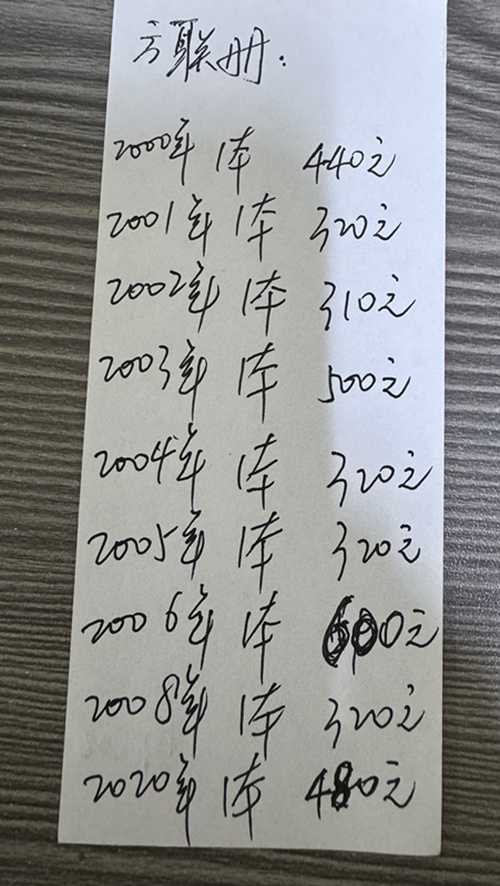 方联册:
2000年 1本 440元
2001年 1本 320元
2002年 1本 310元
2003年 1本 500元
2004年 1本 320元
2005年 1本 320元
2006年 1本 600元
2008年 1本 320元
2020年 1本 480元